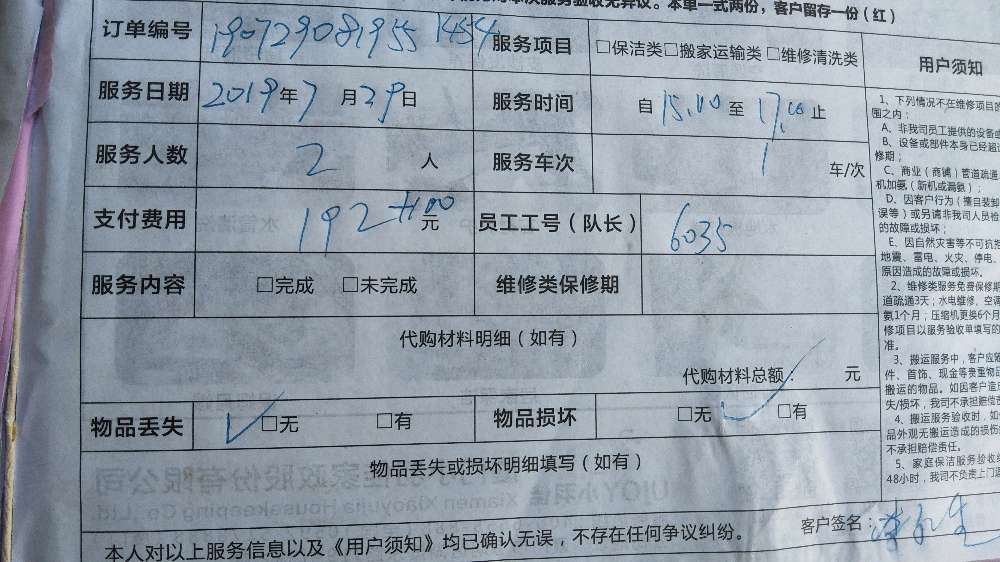 本次服务验收无异议。本单一式两份，客户留存一份（红）
订单编号 190729081955 1454 服务项目 □保洁类□搬家运输类 □维修清洗类
服务日期 2019年7月29日 服务时间 自 15.00 至 17.00 止
服务人数 2 人 服务车次 1 车/次
支付费用 192 元 员工工号（队长） 6035
服务内容 □完成 □未完成 维修类保修期
代购材料明细（如有）
代购材料总额： 元
物品丢失 ✓□无 □有 物品损坏 □无 ✓□有
物品丢失或损坏明细填写（如有）
客户签名：
本人对以上服务信息以及《用户须知》均已确认无误，不存在任何争议纠纷。
用户须知
1、下列情况不在维修项目的
围之内：
A、非我司员工提供的设备或
B、设备或部件本身已经超过
修期；
C、商业（商铺）管道疏通
机加氨（新机或漏氨）；
D、因客户行为（擅自装卸
误等）或另请非我司人员检
的故障或损坏；
E、因自然灾害等不可抗拒
地震、雷电、火灾、停电、
原因造成的故障或损坏。
2、维修类服务免费保修期
道疏通3天；水电维修、空调
氨1个月；压缩机更换6个月
修项目以服务验收单填写的
准。
3、搬运服务中，客户应
件、首饰、现金等贵重物品
搬运的物品。如因客户造
失/损坏，我司不承担赔偿责
4、搬运服务验收时，如
品外观无搬运造成的损伤
不承担赔偿责任。
5、家庭保洁服务验收
48小时，我司不负责上门